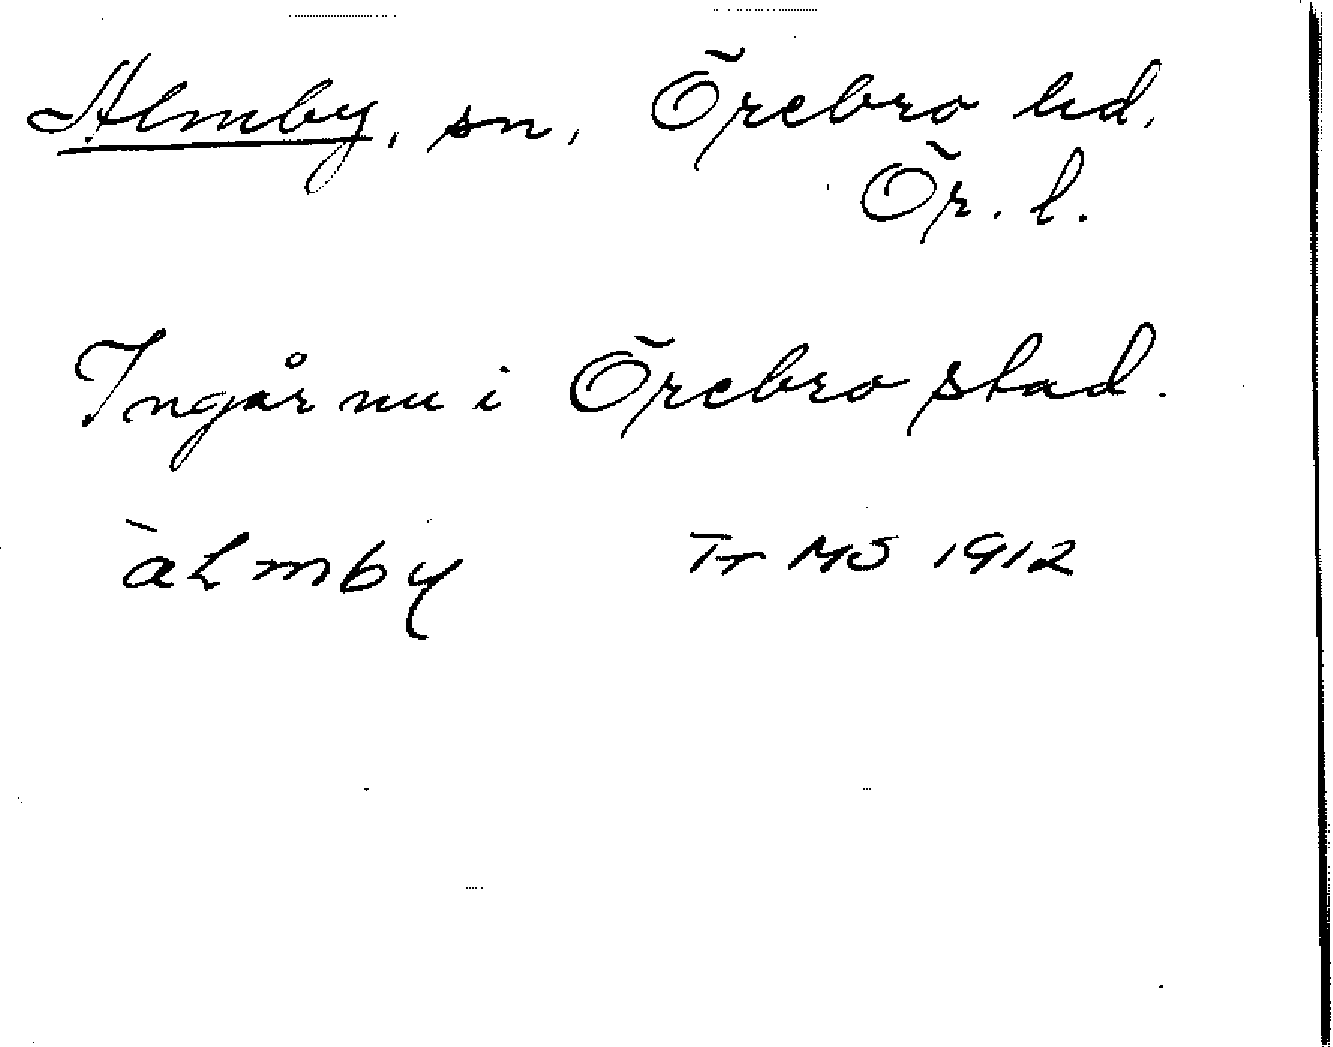 Almby, sn, Örebro hd,
Ör. l.
Ingår nu i Örebro stad.
àLmby Tr MS 1912